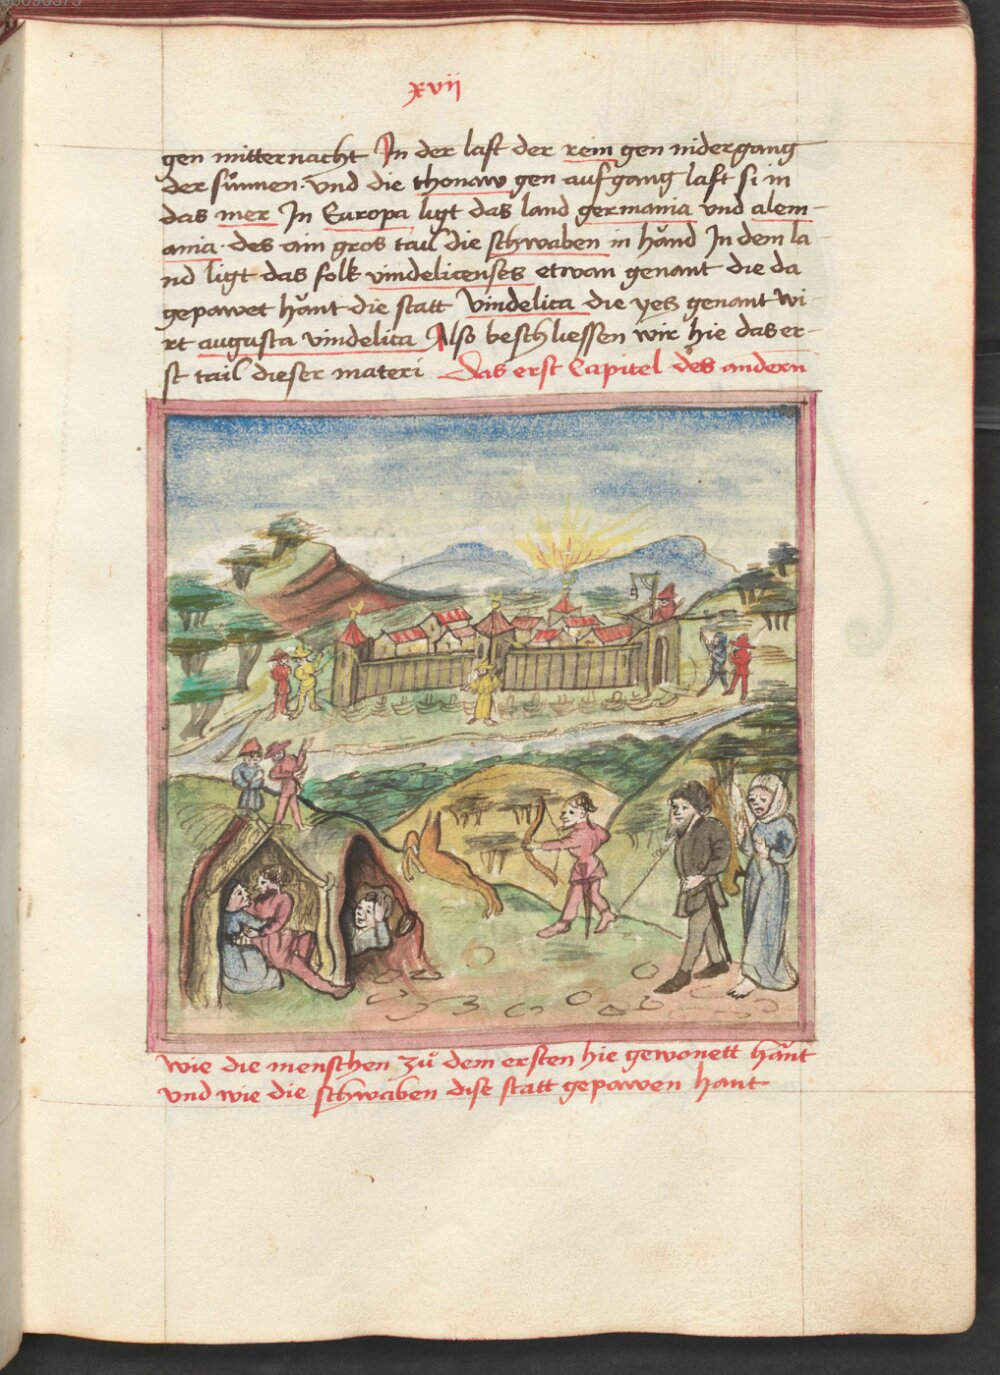 xvii
gen mitternacht In der last der rein gen nidergang
der sũnnen · vnd die thonaw gen aufgang last si in
das mer In Europa ligt das land germania vnd alem-
ania · des ain gros tail die schwaben in hãnd In dem la-
nd ligt das folk vindelicenses etwan genant die da
gepawet hãnt die statt Vindelica die yetz genant wi-
rt augusta vindelica Also beschliessen wir hie das er-
st tail dieser materi Das erst Capitel des andern
wie die menschen zů dem ersten hie gewonett hãnt
vnd wie die schwaben dise statt gepawen hant